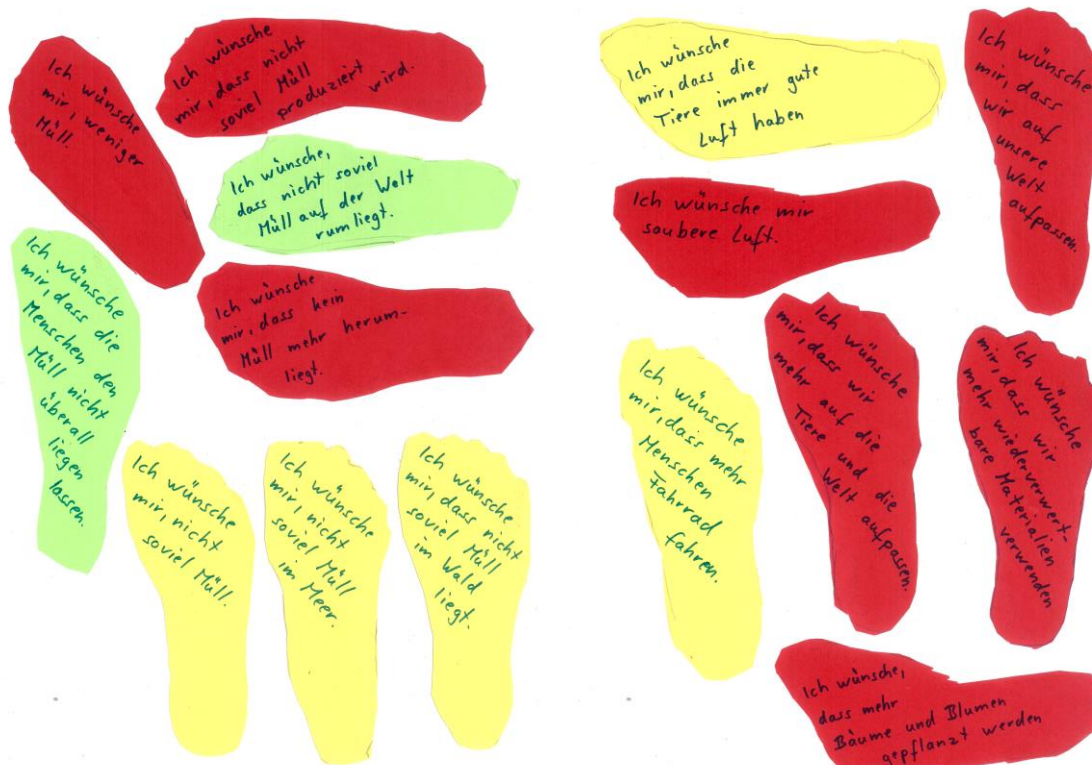 Ich wünsche
mir, weniger
Müll.
Ich wünsche
mir, dass nicht
soviel Müll
produziert wird.
Ich wünsche,
dass nicht soviel
Müll auf der Welt
rumliegt.
Ich wünsche
mir, dass die
Menschen den
Müll nicht
überall
liegen
lassen.
Ich wünsche
mir, dass kein
Müll mehr herum-
liegt.
Ich wünsche
mir, nicht
soviel Müll.
Ich wünsche
mir, nicht
soviel Müll
im Meer.
Ich wünsche
mir, dass nicht
soviel Müll
im Wald
liegt.
Ich wünsche
mir, dass die
Tiere immer gute
Luft haben
Ich wünsche
mir, dass
wir auf
unsere
Welt
aufpassen.
Ich wünsche mir
soubere Luft.
Ich wünsche
mir, dass mehr
Menschen
Fahrrad
fahren.
Ich wünsche
mir, dass wir
mehr auf die
Tiere und die
Welt aufpassen.
Ich wünsche
mir, dass wir
mehr wiederverwert-
bare Materialien
verwenden
Ich wünsche,
dass mehr
Bäume und Blumen
gepflanzt werden